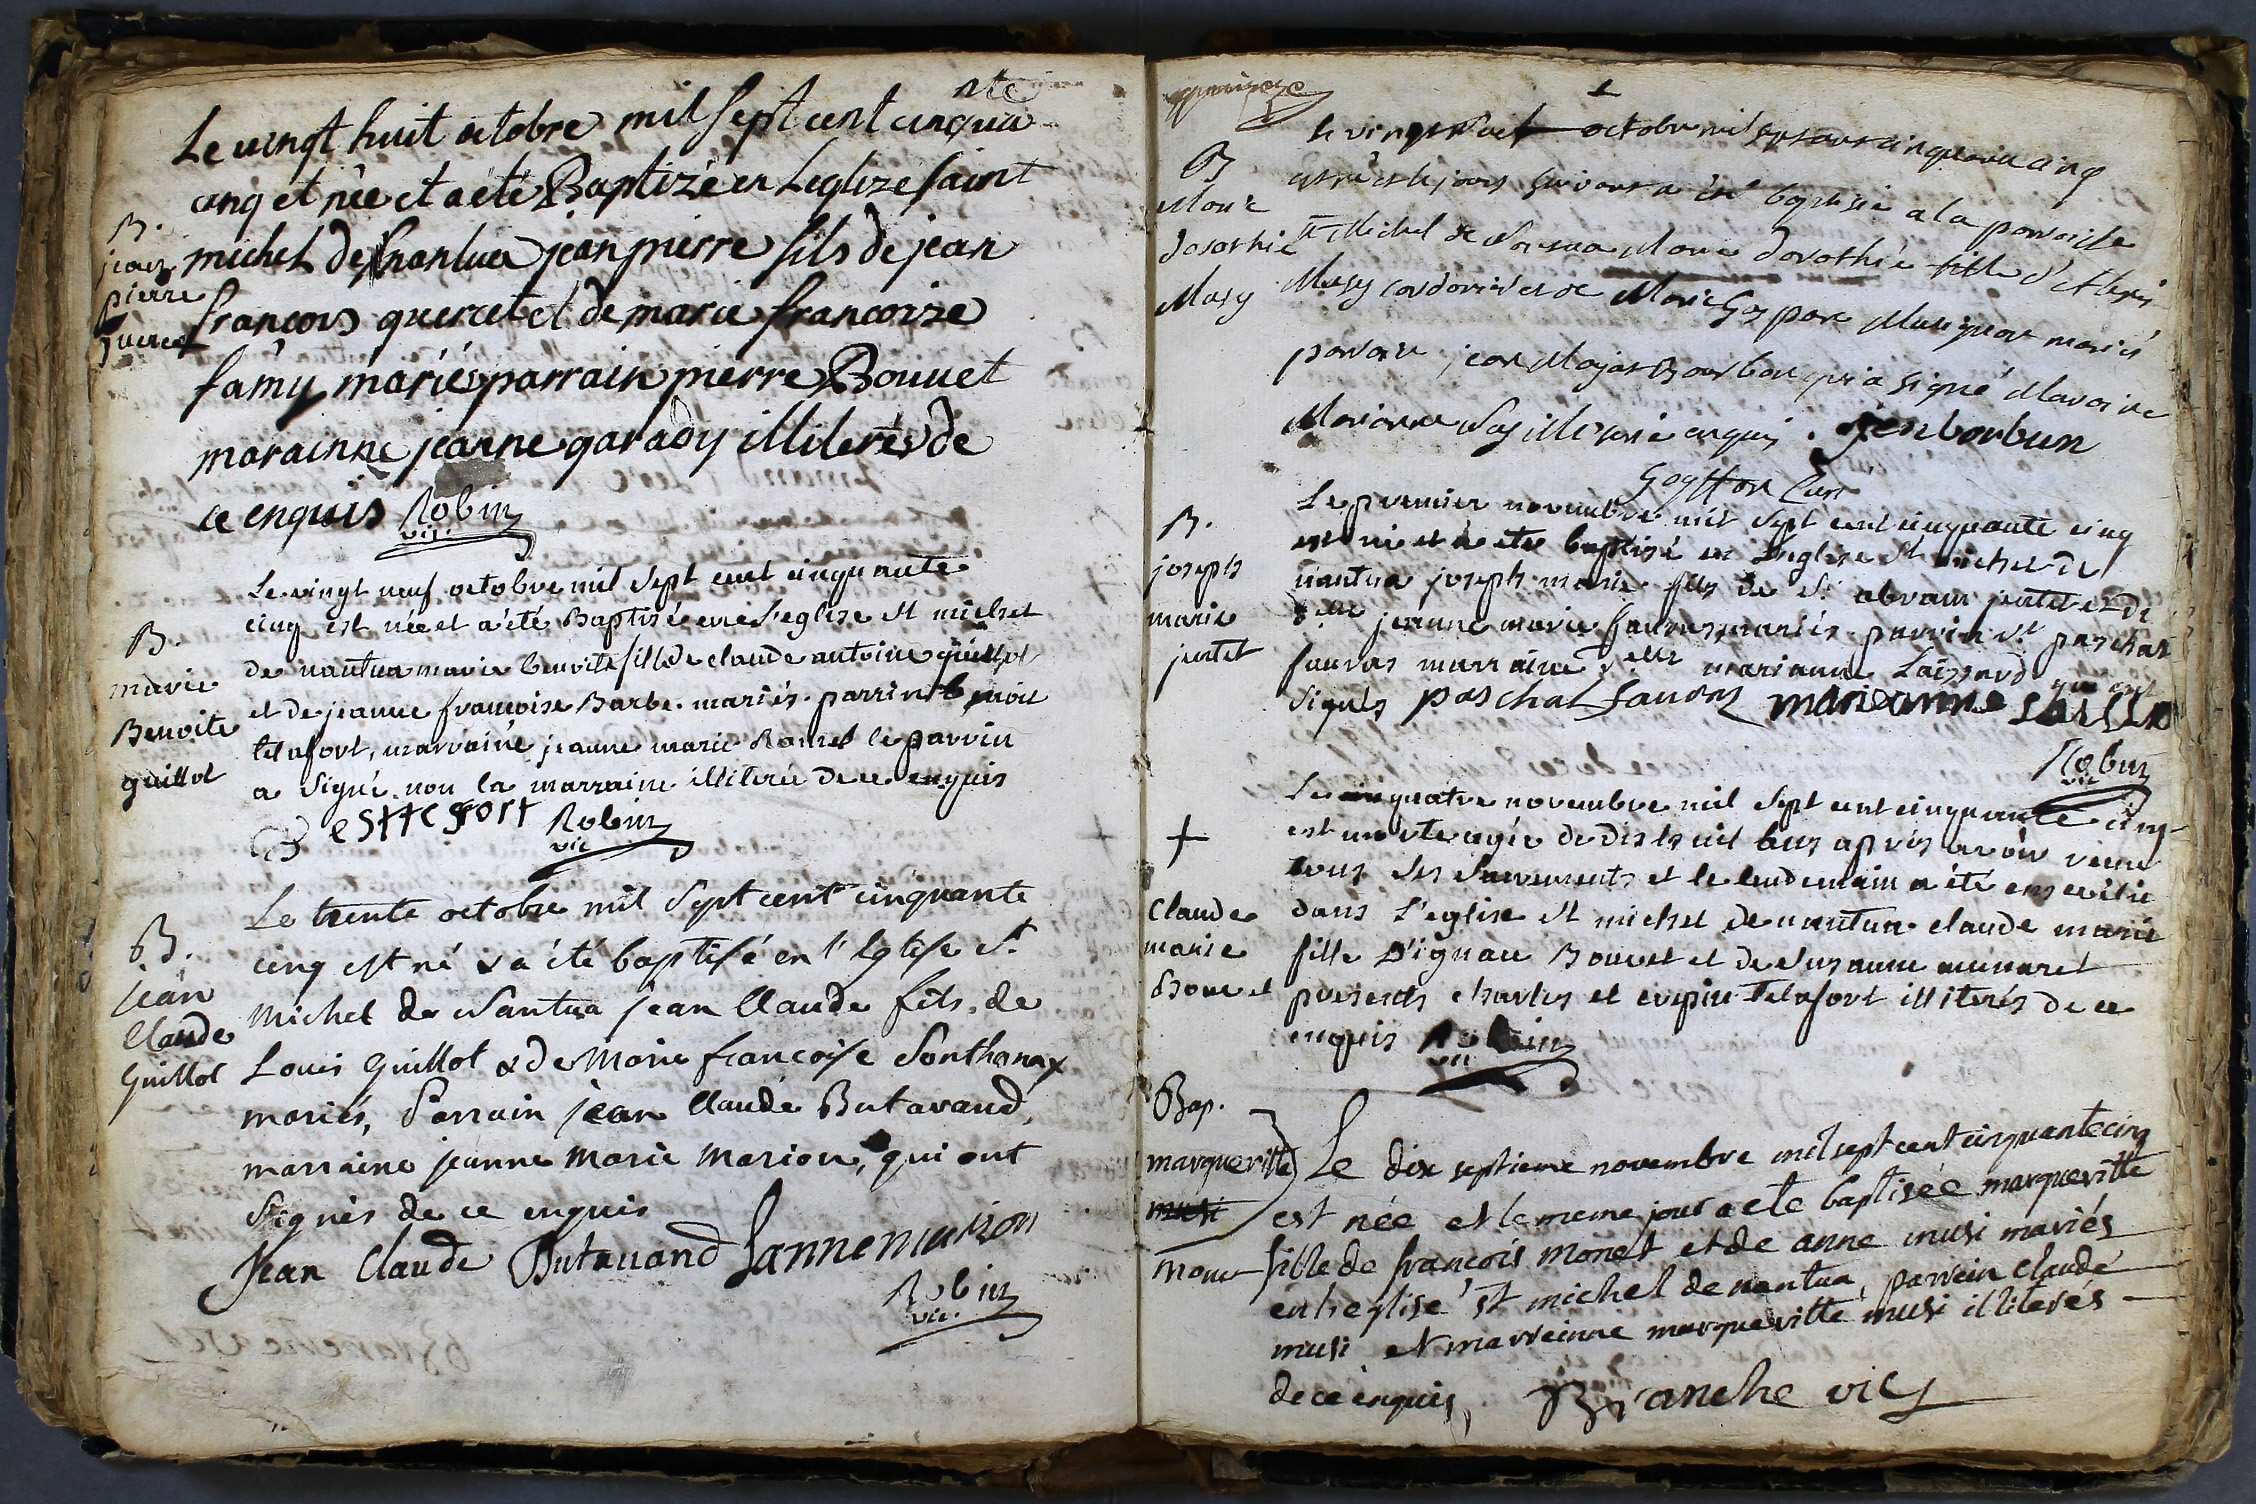 Le vingt huit octobre mil sept cent cinqua nte
cinq et nèe et a été Baptizé en Leglize saint
michel de nantua jean pierre fils de jean
francois quercet et de marie francoize
famy mariés parrain pierre Bouuet
marainne jeanne garady illiterés de
ce enquis Robin
vic.
B.
jean
pierre
quercet
Le vingt neuf octobre mil sept cent cinquante
cinq est née et a été Baptisée en L'eglise st michel
de nantua marie benoite fille de claude antoine guillot
et de jeanne francoise Barbe mariés. parrin benoit
telafort, marraine jeanne marie Bonnet le parrin
a signé non la marraine illiterée de ce enquis
B estteffort Robin
vic
B.
marie
Benoite
guillot
Le trente octobre mil sept cent cinquante
cinq est né & a été baptisé en l'Eglise St.
Michel de Nantua jean Claude fils de
Louis Guillot & de Marie françoise Sonthonax
mariés, Parrain jean Claude Butavand,
marraine jeanne Marie Marion, qui ont
Signés de ce enquis
Jean Claude Butauand Janne marion
Robin
vic.
B.
jean
Claude
Guillot
1
le vingt huit octobre mil sept cent cinquante cinq
est née et le jour suivant a été baptisée a la parroisse
st Michel de Nantua Marie dorothée fille d'Alexis
Musy cordonnier et de Marie Goy pare Musi mariés
parrain jean Bourbon qui a signé Maraine
Marianne Goy illiterée enquis. jen borbun
Goyffon Curé
B
Marie
dorothée
Musy
Le premier novembre mil sept cent cinquante cinq
est né et a été baptisé en L'eglise St michel de
nantua joseph marie fils de Sr abram jentet et de
dlle jeanne marie fauvas mariés. parrin Sr paschal
fauvas marraine dlle marianne Laissard qui ont
signés paschal fauvas marianne
Robin
vic
B.
joseph
marie
jentet
Le quatre novembre mil sept cent cinquante cinq
est morte agée de dix huit ans après avoir recu
tous ses sacrements et le lendemain a été ensevelie
dans L'eglise st michel de nantua claude marie
fille d'ignace Bouvet et de susanne munaret
presents charles et crepin telafort illiterés de ce
enquis Robin
vic
+
Claude
marie
Bouvet
Le dix septieme novembre mil sept cent cinquante cinq
est née et le meme jour a ete baptisée margueritte
fille de francois monet et de anne musi mariés
en l'eglise st michel de nantua, parrein claude
musi et marreinne margueritte musi illiterés
de ce enquis, Branche vic
Bap.
margueritte
musi
monet